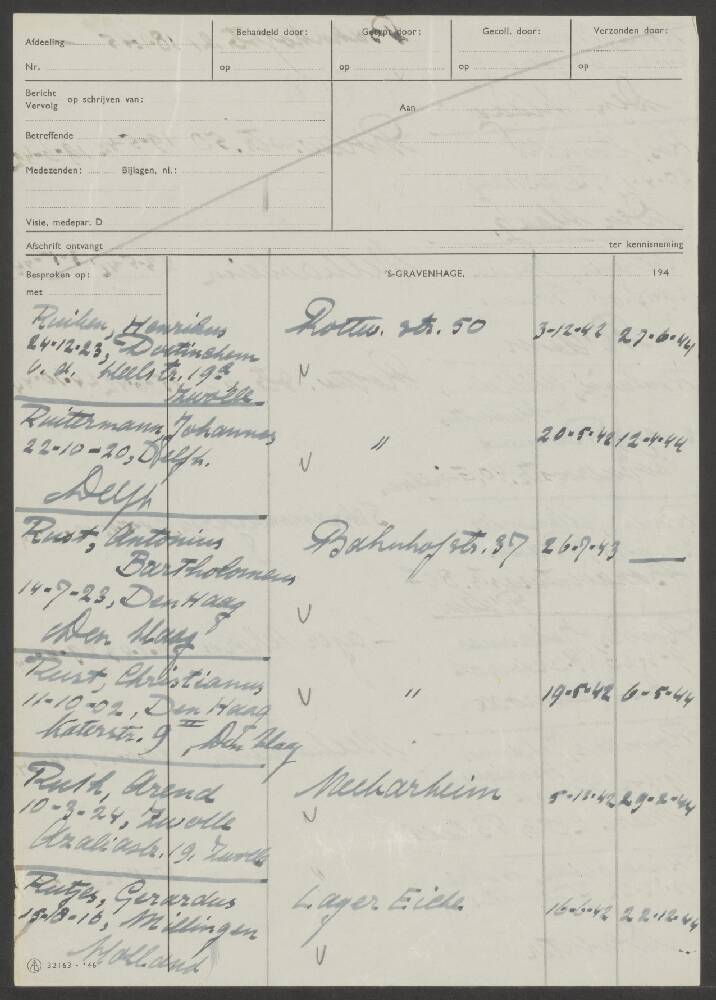 Afdeeling
Behandeld door:
Getypt door:
Gecoll. door:
Verzonden door:
Nr.
op
op
op
op
Bericht
Vervolg op schrijven van:
Aan
Betreffende
Medezenden: Bijlagen, nl.:
Visie, medepar. D
Afschrift ontvangt
ter kennisneming
Besproken op:
'S-GRAVENHAGE,
194
met
Ruiken, Henrikus
Rottw. str. 50
3-12-42
27-6-44
24-12-23, Doetinchem
v. d. Heelstr. 19a
Zwolle
Ruitermann, Johannes
"
20-5-42
12-4-44
22-10-20, Delft.
Delft
Rust, Antonius
Bahnhofstr. 37
26-7-43
—
Bartholomeus
14-7-23, Den Haag
Den Haag
Rust, Christianus
"
19-5-42
6-5-44
11-10-02, Den Haag
Katerstr. 9 II, Den Haag
Ruth, Arend
Neckarheim
5-11-42
29-2-44
10-3-24, Zwolle
Azaliastr. 19, Zwolle
Rutjes, Gerardus
Lager Eiche
16-6-42
22-12-44
15-8-16, Millingen
Holland
32163 - '46